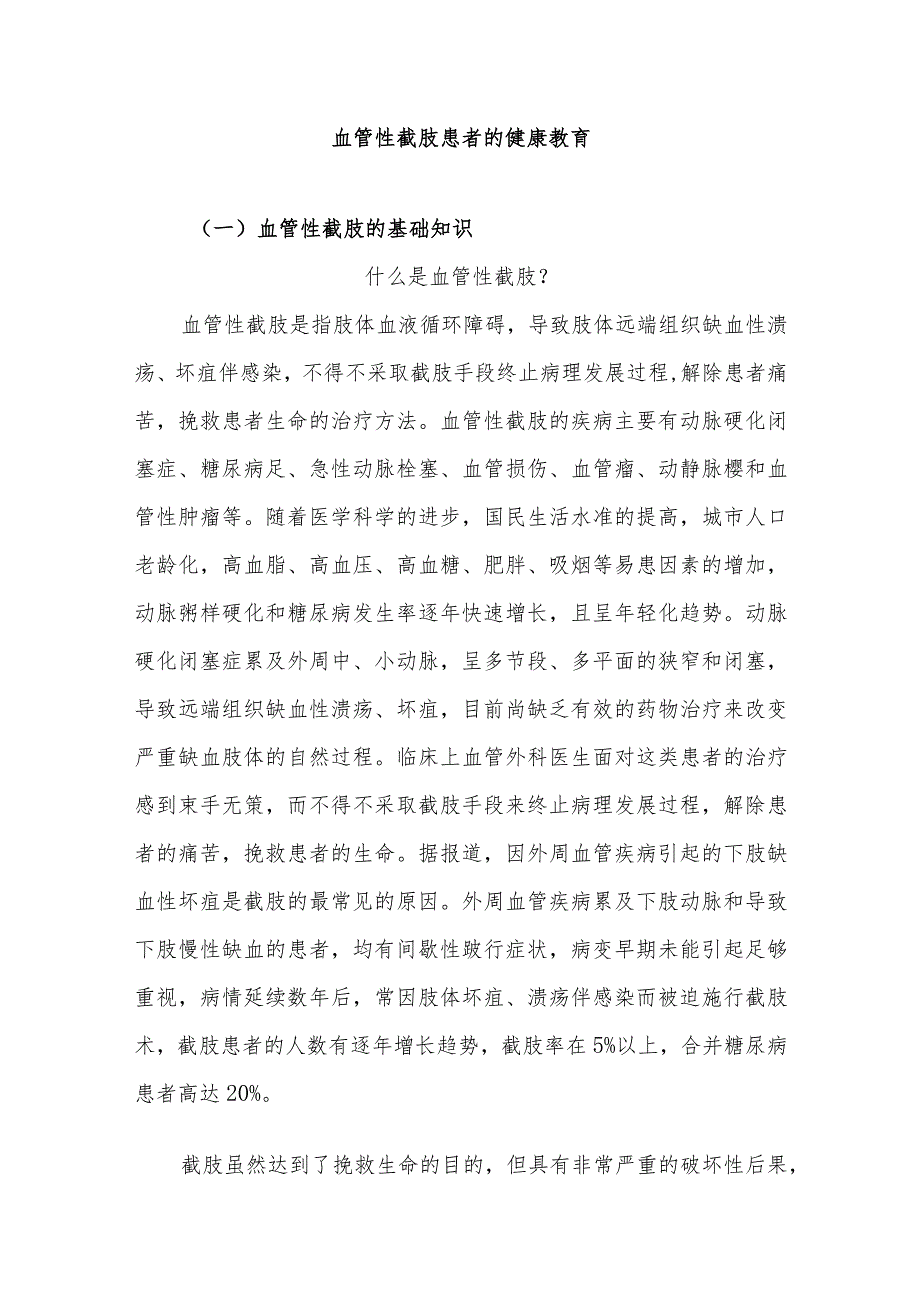 血管性截肢患者的健康教育
（一）血管性截肢的基础知识
什么是血管性截肢？
血管性截肢是指肢体血液循环障碍，导致肢体远端组织缺血性溃
疡、坏疽伴感染，不得不采取截肢手段终止病理发展过程,解除患者痛
苦，挽救患者生命的治疗方法。血管性截肢的疾病主要有动脉硬化闭
塞症、糖尿病足、急性动脉栓塞、血管损伤、血管瘤、动静脉樱和血
管性肿瘤等。随着医学科学的进步，国民生活水准的提高，城市人口
老龄化，高血脂、高血压、高血糖、肥胖、吸烟等易患因素的增加，
动脉粥样硬化和糖尿病发生率逐年快速增长，且呈年轻化趋势。动脉
硬化闭塞症累及外周中、小动脉，呈多节段、多平面的狭窄和闭塞，
导致远端组织缺血性溃疡、坏疽，目前尚缺乏有效的药物治疗来改变
严重缺血肢体的自然过程。临床上血管外科医生面对这类患者的治疗
感到束手无策，而不得不采取截肢手段来终止病理发展过程，解除患
者的痛苦，挽救患者的生命。据报道，因外周血管疾病引起的下肢缺
血性坏疽是截肢的最常见的原因。外周血管疾病累及下肢动脉和导致
下肢慢性缺血的患者，均有间歇性跛行症状，病变早期未能引起足够
重视，病情延续数年后，常因肢体坏疽、溃疡伴感染而被迫施行截肢
术，截肢患者的人数有逐年增长趋势，截肢率在5%以上，合并糖尿病
患者高达20%。
截肢虽然达到了挽救生命的目的，但具有非常严重的破坏性后果，